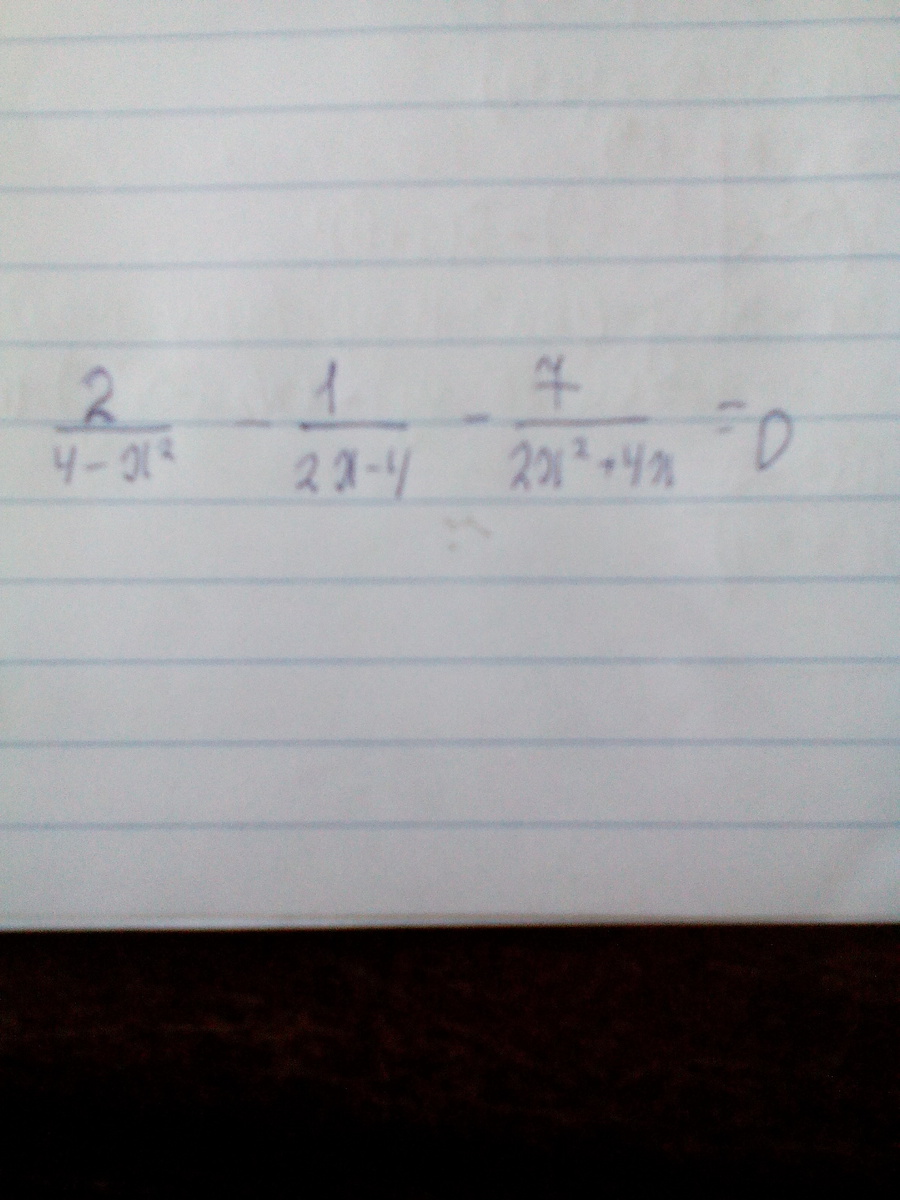 2/(4-x²) - 1/(2x-4) - 7/(2x²+4x) = 0